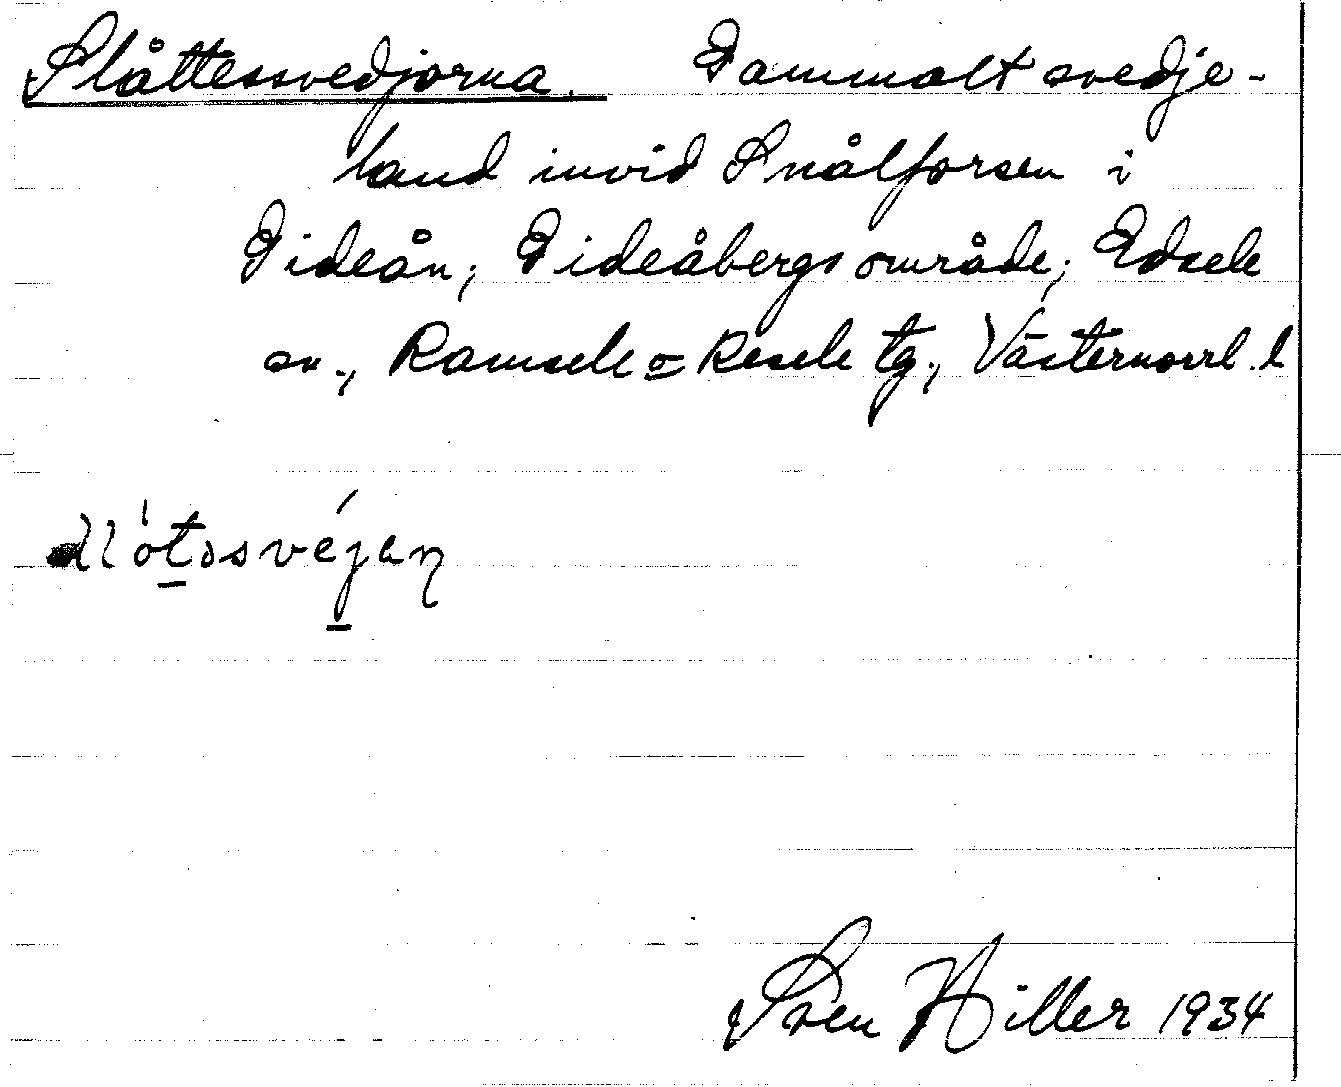 Slåttessvedjorna. Gammalt svedje-
land invid Snålforsen i
Gideån, Gideåbergs område, Edsele
sn., Ramsele o Resele tg., Västernorrl. l
Sven Hiller 1934